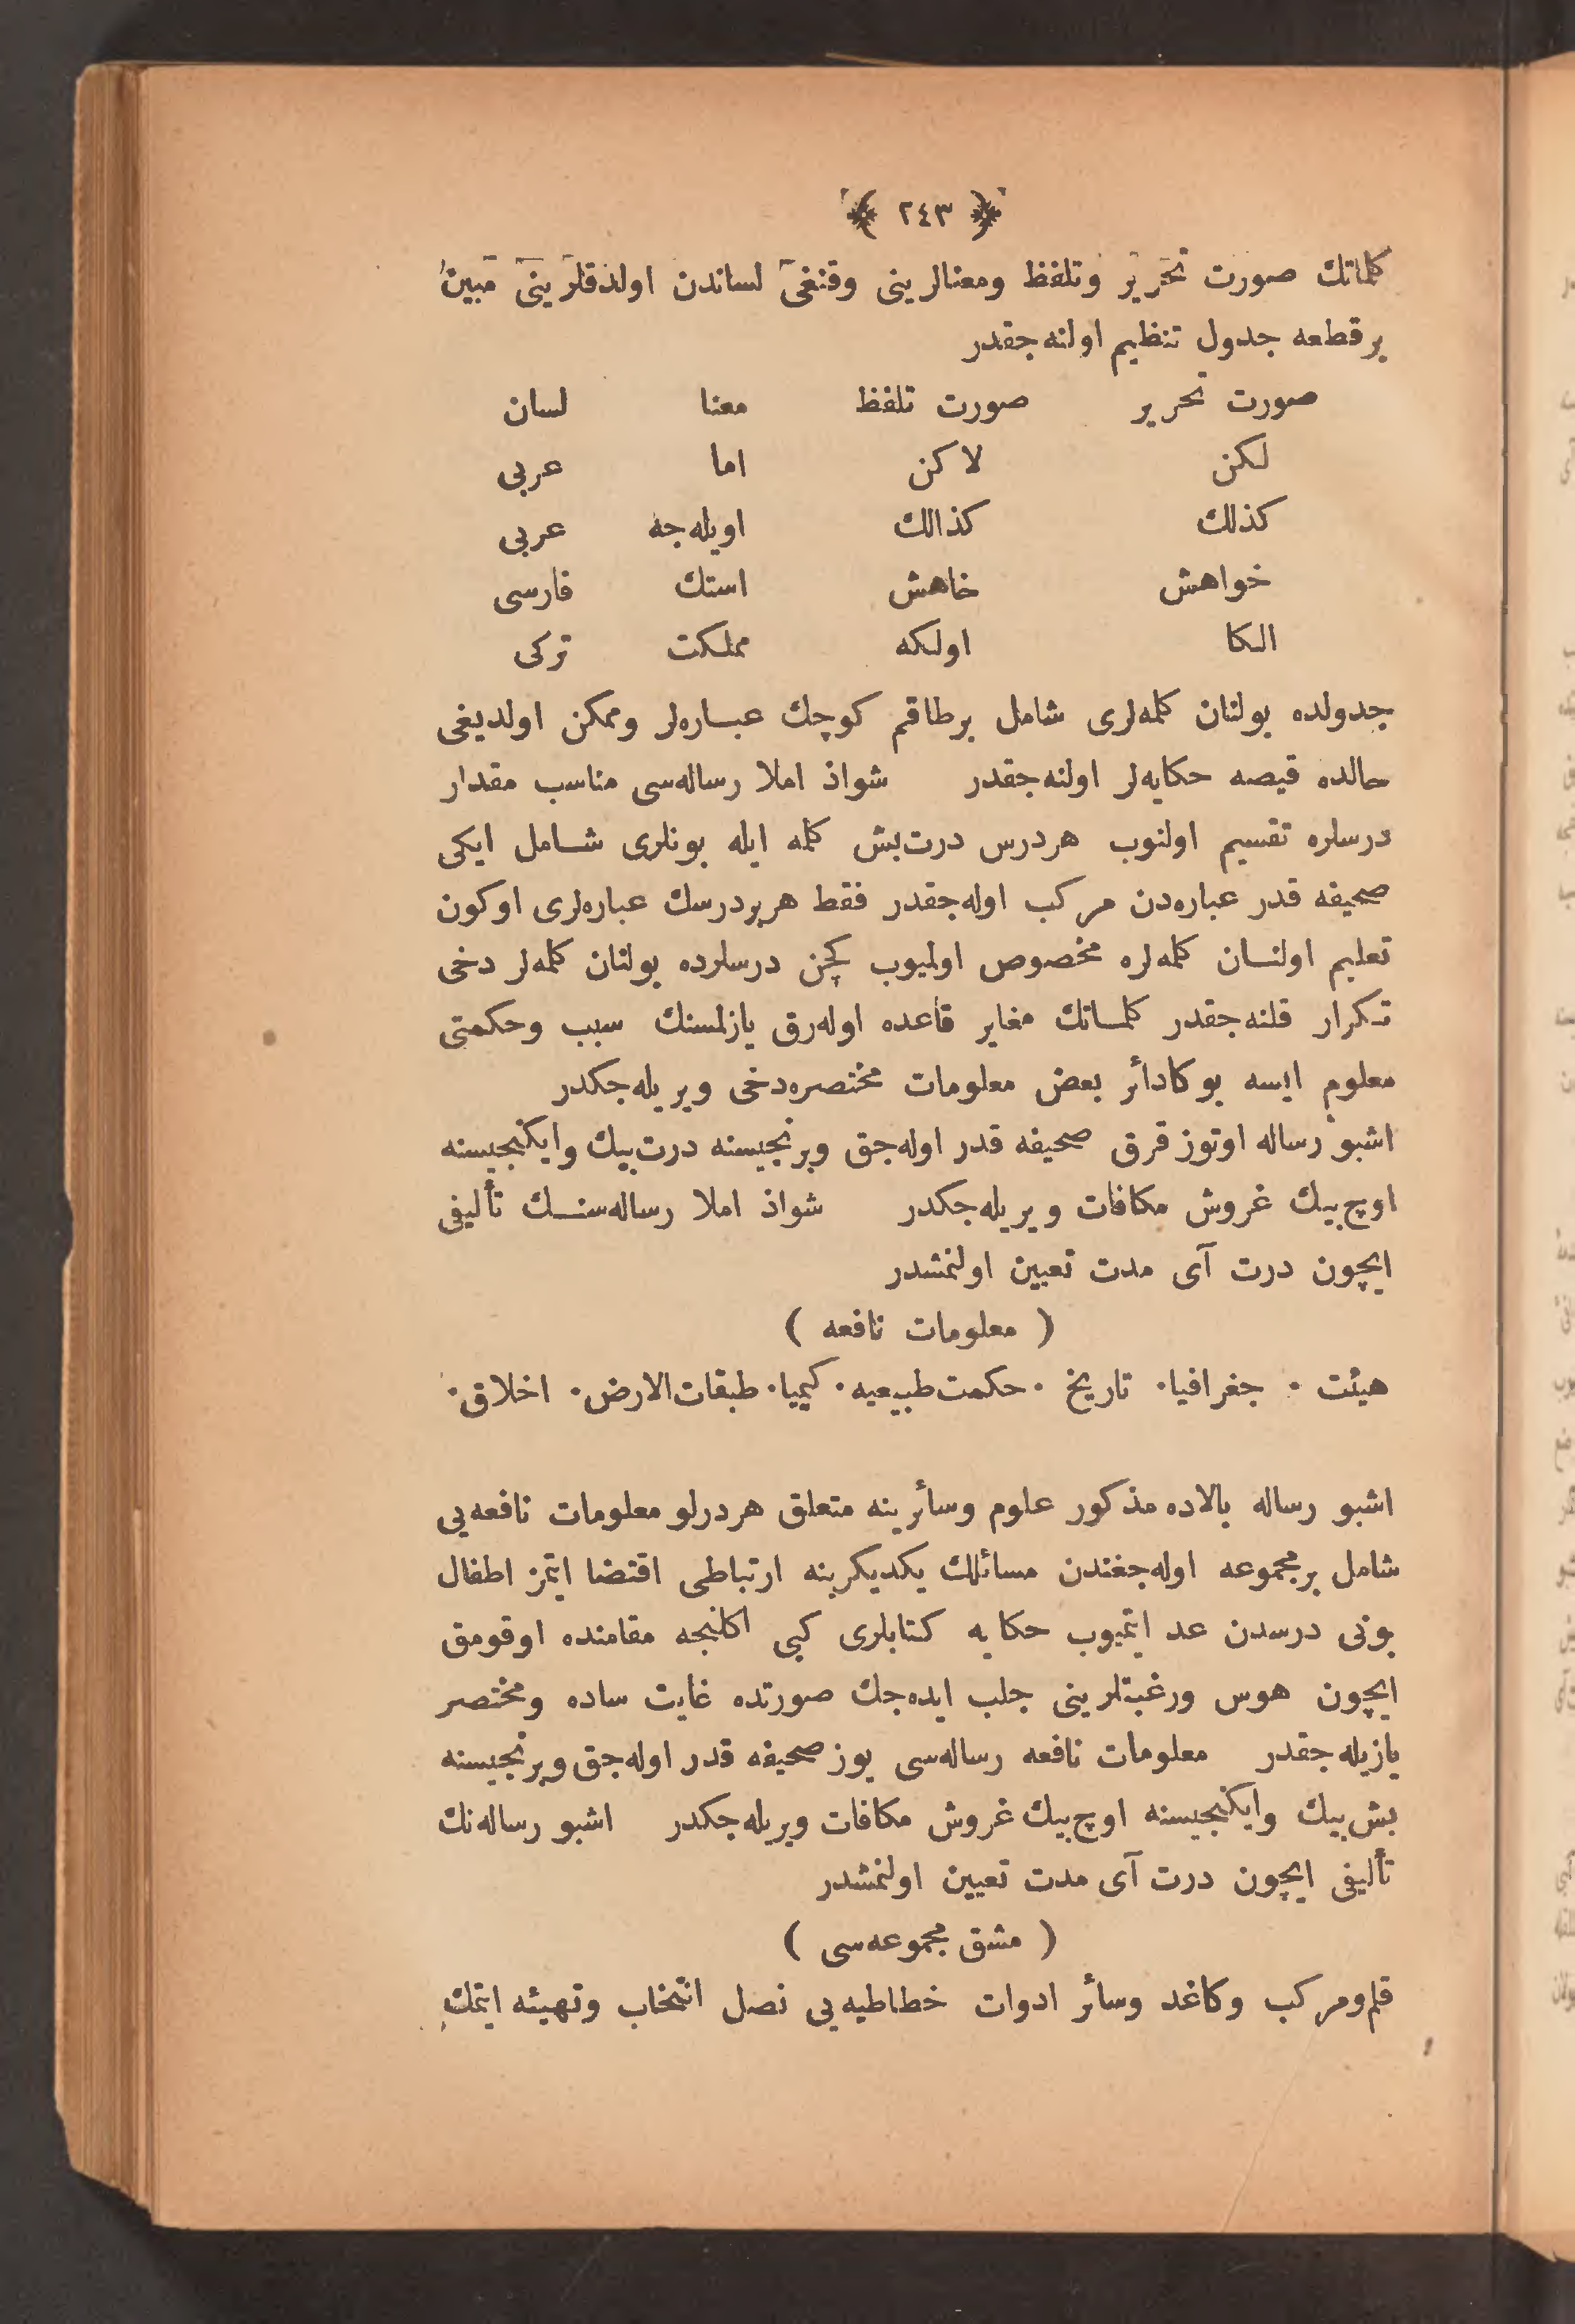 ﴿ ٢٤٣ ﴾
كلماتك صورت تحرير وتلفظ ومعنالرينى وقنغى لساندن اولدقلرينى مبين
بر قطعه جدول تنظيم اولنه‌جقدر
صورت تحرير صورت تلفظ معنا لسان
لكن لاكن اما عربى
كذلك كذالك اويله‌جه عربى
خواهش خاهش استك فارسى
الكا اولكه مملكت تركى
جدولده بولنان كلمه‌لرى شامل برطاقم كوچك عباره‌لر وممكن اولديغى
حالده قيصه حكايه‌لر اولنه‌جقدر شواذ املا رساله‌سى مناسب مقدار
درسلره تقسيم اولنوب هردرس درت‌بش كلمه ايله بونلرى شامل ايكى
صحيفه قدر عباره‌دن مركب اوله‌جقدر فقط هربردرسك عباره‌لرى اوكون
تعليم اولنان كلمه‌لره مخصوص اولميوب كچن درسلرده بولنان كلمه‌لر دخى
تكرار قلنه‌جقدر كلماتك مغاير قاعده اوله‌رق يازلمسنك سبب وحكمتى
معلوم ايسه بوكادائر بعض معلومات مختصره‌دخى ويريله‌جكدر
اشبو رساله اوتوز قرق صحيفه قدر اوله‌جق وبرنجيسنه درت‌بيك وايكنجيسنه
اوچ‌بيك غروش مكافات ويريله‌جكدر شواذ املا رساله‌سنك تأليفى
ايچون درت آى مدت تعيين اولنمشدر
( معلومات نافعه )
هيئت · جغرافيا · تاريخ · حكمت‌طبيعيه · كيميا · طبقات‌الارض · اخلاق ·
اشبو رساله بالاده مذكور علوم وسائرينه متعلق هردرلو معلومات نافعه‌يى
شامل برمجموعه اوله‌جغندن مسائلك يكديكرينه ارتباطى اقتضا ايتمز اطفال
بونى درسدن عد ايتميوب حكايه كتابلرى كبى اكلنجه مقامنده اوقومق
ايچون هوس ورغبتلرينى جلب ايده‌جك صورتده غايت ساده ومختصر
يازيله‌جقدر معلومات نافعه رساله‌سى يوز صحيفه قدر اوله‌جق وبرنجيسنه
بش‌بيك وايكنجيسنه اوچ‌بيك غروش مكافات ويريله‌جكدر اشبو رساله‌نك
تأليفى ايچون درت آى مدت تعيين اولنمشدر
( مشق مجموعه‌سى )
قلم‌ومركب وكاغد وسائر ادوات خطاطيه‌يى نصل انتخاب وتهيئه ايتمك